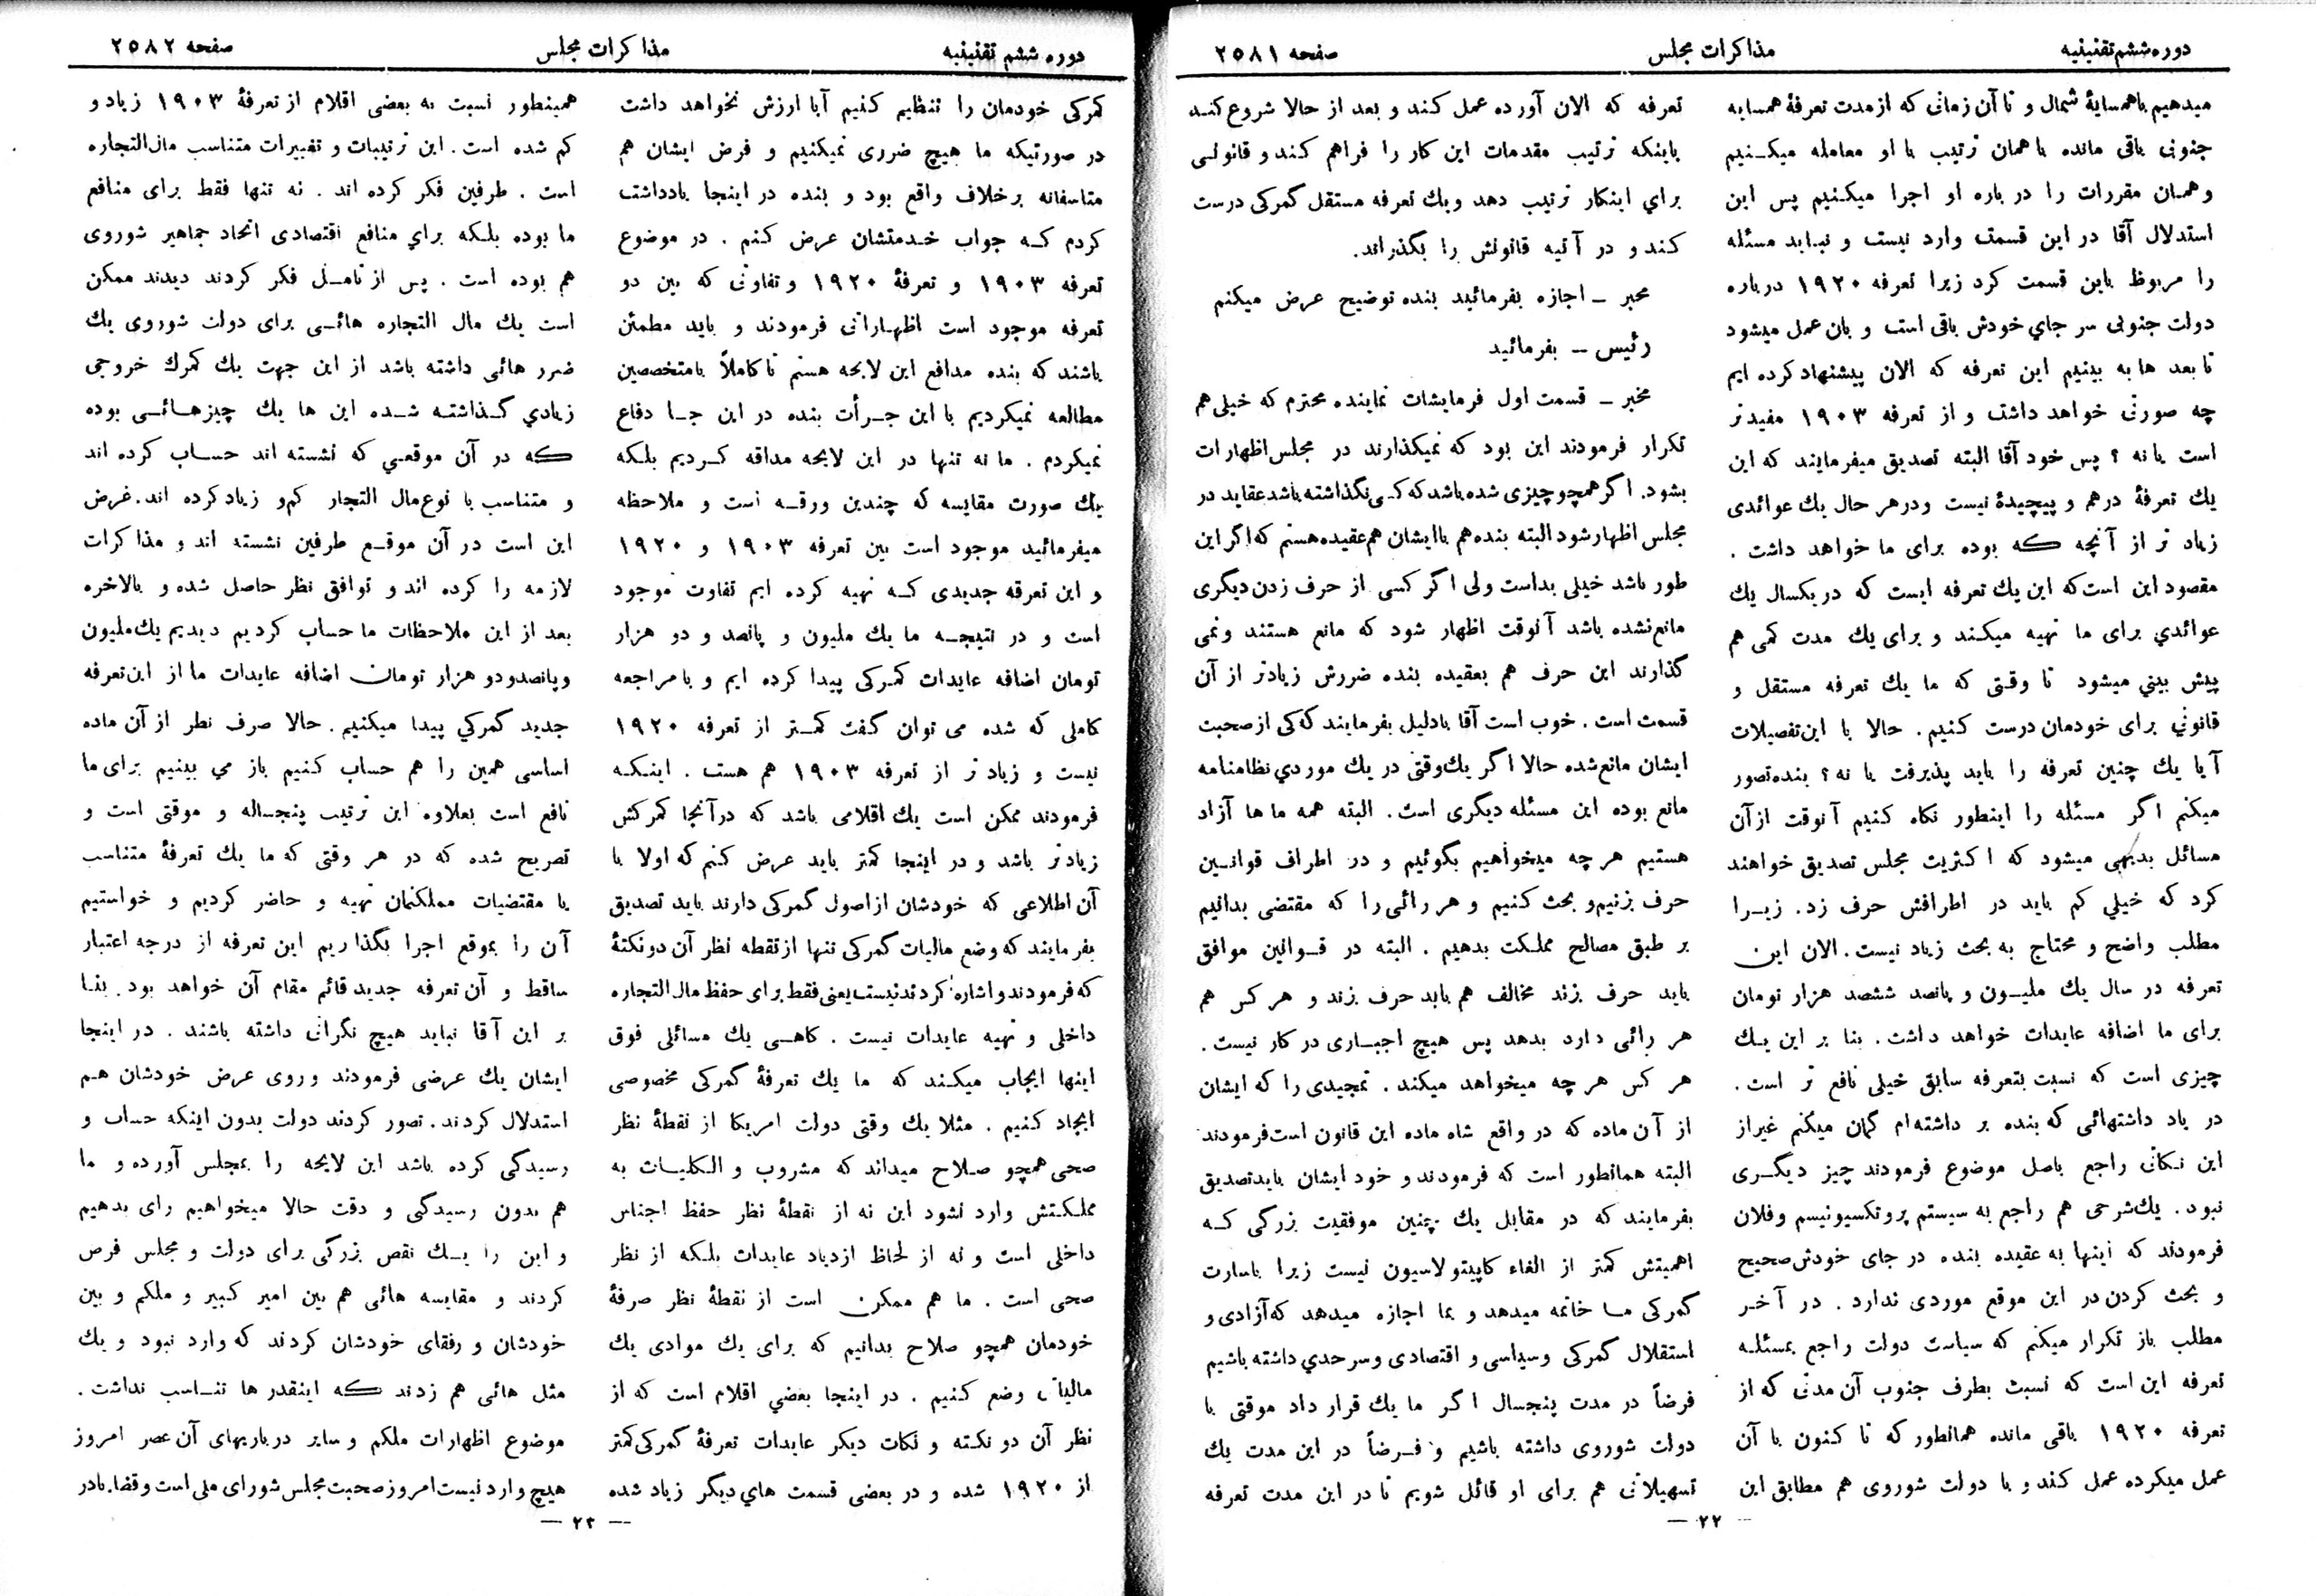 دوره ششم تقنینیه
مذاکرات مجلس
صفحه ۲۵۸۱
میدهیم باهمسایۀ شمال و تا آن زمانی که از مدت تعرفۀ همسایه
جنوبی باقی مانده با همان ترتیب با او معامله میکنیم
و همان مقررات را در باره او اجرا میکنیم پس این
استدلال آقا در این قسمت وارد نیست و نباید مسئله
را مربوط باین قسمت کرد زیرا تعرفه ۱۹۲۰ درباره
دولت جنوبی سر جای خودش باقی است و بان عمل میشود
تا بعد ها به بینیم این تعرفه که الان پیشنهاد کرده ایم
چه صورتی خواهد داشت و از تعرفه ۱۹۰۳ مفیدتر
است یا نه ؟ پس خود آقا البته تصدیق میفرمایند که این
یك تعرفۀ درهم و پیچیدۀ نیست و درهر حال یك عوائدی
زیاد تر از آنچه که بوده برای ما خواهد داشت .
مقصود این است که این یك تعرفه ایست که در یکسال یك
عوائدي برای ما تهیه میکند و برای یك مدت کمی هم
پیش بیني میشود تا وقتی که ما یك تعرفه مستقل و
قانونی برای خودمان درست کنیم . حالا با این تفصیلات
آیا یك چنین تعرفه را باید پذیرفت یا نه ؟ بنده تصور
میکنم اگر مسئله را اینطور نگاه کنیم آنوقت از آن
مسائل بدیهی میشود که اکثریت مجلس تصدیق خواهند
کرد که خیلي کم باید در اطرافش حرف زد . زیرا
مطلب واضح و محتاج به بحث زیاد نیست . الان این
تعرفه در سال یك ملیون و پانصد ششصد هزار تومان
برای ما اضافه عایدات خواهد داشت . بنا بر این یك
چیزی است که نسبت بتعرفه سابق خیلی نافع تر است .
در یاد داشتهائی که بنده بر داشته‌ام گمان میکنم غیر از
این نکاتی راجع باصل موضوع فرمودند چیز دیگری
نبود . یك شرحی هم راجع به سیستم پروتکسیونیسم و فلان
فرمودند که اینها به عقیده بنده در جای خودش صحیح
و بحث کردن در این موقع موردی ندارد . در آخر
مطلب باز تکرار میکنم که سیاست دولت راجع بمسئله
تعرفه این است که نسبت بطرف جنوب آن مدتی که از
تعرفه ۱۹۲۰ باقی مانده همانطور که تا کنون با آن
عمل میکرده عمل کند و با دولت شوروی هم مطابق این
تعرفه که الان آورده عمل کند و بعد از حالا شروع کند
باینکه ترتیب مقدمات این کار را فراهم کند و قانونی
برای اینکار ترتیب دهد و یك تعرفه مستقل گمرکی درست
کند و در آتیه قانونش را بگذراند .
مخبر ـ اجازه بفرمائید بنده توضیح عرض میکنم
رئیس ــ بفرمائید
مخبر ـ قسمت اول فرمایشات نماینده محترم که خیلی هم
تکرار فرمودند این بود که نمیگذارند در مجلس اظهارات
بشود . اگر همچو چیزی شده باشد که کسی نگذاشته باشد عقاید در
مجلس اظهار شود البته بنده هم با ایشان هم عقیده هستم که اگر این
طور باشد خیلی بداست ولی اگر کسی از حرف زدن دیگری
مانع نشده باشد آنوقت اظهار شود که مانع هستند و نمی
گذارند این حرف هم بعقیده بنده ضررش زیادتر از آن
قسمت است . خوب است آقا بادلیل بفرمایند که کی از صحبت
ایشان مانع شده حالا اگر یك وقتی در یك موردي نظامنامه
مانع بوده این مسئله دیگری است . البته همه ما ها آزاد
هستیم هر چه میخواهیم بگوئیم و در اطراف قوانین
حرف بزنیم و بحث کنیم و هر رائی را که مقتضی بدانیم
بر طبق مصالح مملکت بدهیم . البته در قوانین موافق
باید حرف بزند مخالف هم باید حرف بزند و هر کس هم
هر رائی دارد بدهد پس هیچ اجباری در کار نیست .
هر کس هر چه میخواهد میکند . تمجیدی را که ایشان
از آن ماده که در واقع شاه ماده این قانون است فرمودند
البته همانطور است که فرمودند و خود ایشان باید تصدیق
بفرمایند که در مقابل یك چنین موفقیت بزرگی که
اهمیتش کمتر از الغاء کاپیتولاسیون نیست زیرا باسارت
گمرکی ما خاتمه میدهد و بما اجازه میدهد که آزادی و
استقلال گمرکی وسیاسی و اقتصادی وسرحدي داشته باشیم
فرضاً در مدت پنجسال اگر ما یك قرار داد موقتی با
دولت شوروی داشته باشیم و فرضاً در این مدت یك
تسهیلاتی هم برای او قائل شویم تا در این مدت تعرفه
— ۲۲ —
دوره ششم تقنینیه
مذاکرات مجلس
صفحه ۲۵۸۲
گمرکی خودمان را تنظیم کنیم آیا ارزش نخواهد داشت
در صورتیکه ما هیچ ضرری نمیکنیم و فرض ایشان هم
متاسفانه برخلاف واقع بود و بنده در اینجا یادداشت
کردم که جواب خدمتشان عرض کنم . در موضوع
تعرفه ۱۹۰۳ و تعرفۀ ۱۹۲۰ و تفاوتی که بین دو
تعرفه موجود است اظهاراتی فرمودند و باید مطمئن
باشند که بنده مدافع این لایحه هستم تا کاملاً با متخصصین
مطالعه نمیکردیم با این جرأت بنده در این جا دفاع
نمیکردم . ما نه تنها در این لایحه مداقه کردیم بلکه
یك صورت مقایسه که چندین ورقه است و ملاحظه
میفرمائید موجود است بین تعرفه ۱۹۰۳ و ۱۹۲۰
و این تعرفه جدیدی که تهیه کرده ایم تفاوت موجود
است و در نتیجه ما یك ملیون و پانصد و دو هزار
تومان اضافه عایدات گمرکی پیدا کرده ایم و با مراجعه
کاملی که شده می توان گفت کمتر از تعرفه ۱۹۲۰
نیست و زیاد تر از تعرفه ۱۹۰۳ هم هست . اینکه
فرمودند ممکن است یك اقلامی باشد که در آنجا گمرکش
زیادتر باشد و در اینجا کمتر باید عرض کنم که اولا با
آن اطلاعی که خودشان از اصول گمرکی دارند باید تصدیق
بفرمایند که وضع مالیات گمرکی تنها از نقطه نظر آن دو نکتۀ
که فرمودند و اشاره کردند نیست یعنی فقط برای حفظ مال التجاره
داخلی و تهیه عایدات نیست . گاهی یك مسائلی فوق
اینها ایجاب میکند که ما یك تعرفۀ گمرکی مخصوصی
ایجاد کنیم . مثلا یك وقتی دولت امریکا از نقطۀ نظر
صحی همچو صلاح میداند که مشروب و الکلیات به
مملکتش وارد نشود این نه از نقطۀ نظر حفظ اجناس
داخلی است و نه از لحاظ ازدیاد عایدات بلکه از نظر
صحی است . ما هم ممکن است از نقطۀ نظر صرفۀ
خودمان همچو صلاح بدانیم که برای یك موادی یك
مالیاتی وضع کنیم . در اینجا بعضي اقلام است که از
نظر آن دو نکته و نکات دیگر عایدات تعرفۀ گمرکی کمتر
از ۱۹۲۰ شده و در بعضی قسمت های دیگر زیاد شده
همینطور نسبت به بعضی اقلام از تعرفۀ ۱۹۰۳ زیاد و
کم شده است . این ترتیبات و تغییرات متناسب مال‌التجاره
است . طرفین فکر کرده اند . نه تنها فقط برای منافع
ما بوده بلکه براي منافع اقتصادی اتحاد جماهیر شوروی
هم بوده است . پس از تامل فکر کردند دیدند ممکن
است یك مال التجاره هائی برای دولت شوروی یك
ضرر هائی داشته باشد از این جهت یك گمرك خروجی
زیادي گذاشته شده این ها یك چیزهائی بوده
که در آن موقعي که نشسته اند حساب کرده اند
و متناسب با نوع مال التجار کم و زیاد کرده اند . غرض
این است در آن موقع طرفین نشسته اند و مذاکرات
لازمه را کرده اند و توافق نظر حاصل شده و بالاخره
بعد از این ملاحظات ما حساب کردیم دیدیم یك ملیون
و پانصد و دو هزار تومان اضافه عایدات ما از این تعرفه
جدید گمرکي پیدا میکنیم . حالا صرف نظر از آن ماده
اساسی همین را هم حساب کنیم باز می بینیم برای ما
نافع است بعلاوه این ترتیب پنجساله و موقتی است و
تصریح شده که در هر وقتی که ما یك تعرفۀ متناسب
با مقتضیات مملکتمان تهیه و حاضر کردیم و خواستیم
آن را بموقع اجرا بگذاریم این تعرفه از درجه اعتبار
ساقط و آن تعرفه جدید قائم مقام آن خواهد بود . بنا
بر این آقا نباید هیچ نگرانی داشته باشند . در اینجا
ایشان یك عرضی فرمودند و روی عرض خودشان هم
استدلال کردند . تصور کردند دولت بدون اینکه حساب و
رسیدگی کرده باشد این لایحه را بمجلس آورده و ما
هم بدون رسیدگی و دقت حالا میخواهیم رای بدهیم
و این را یك نقص بزرگی برای دولت و مجلس فرض
کردند و مقایسه هائی هم بین امیر کبیر و ملکم و بین
خودشان و رفقای خودشان کردند که وارد نبود و یك
مثل هائی هم زدند که اینقدر ها تناسب نداشت .
موضوع اظهارات ملکم و سایر درباریهای آن عصر امروز
هیچ وارد نیست امروز صحبت مجلس شورای ملی است و قضایا در
— ۲۳ —